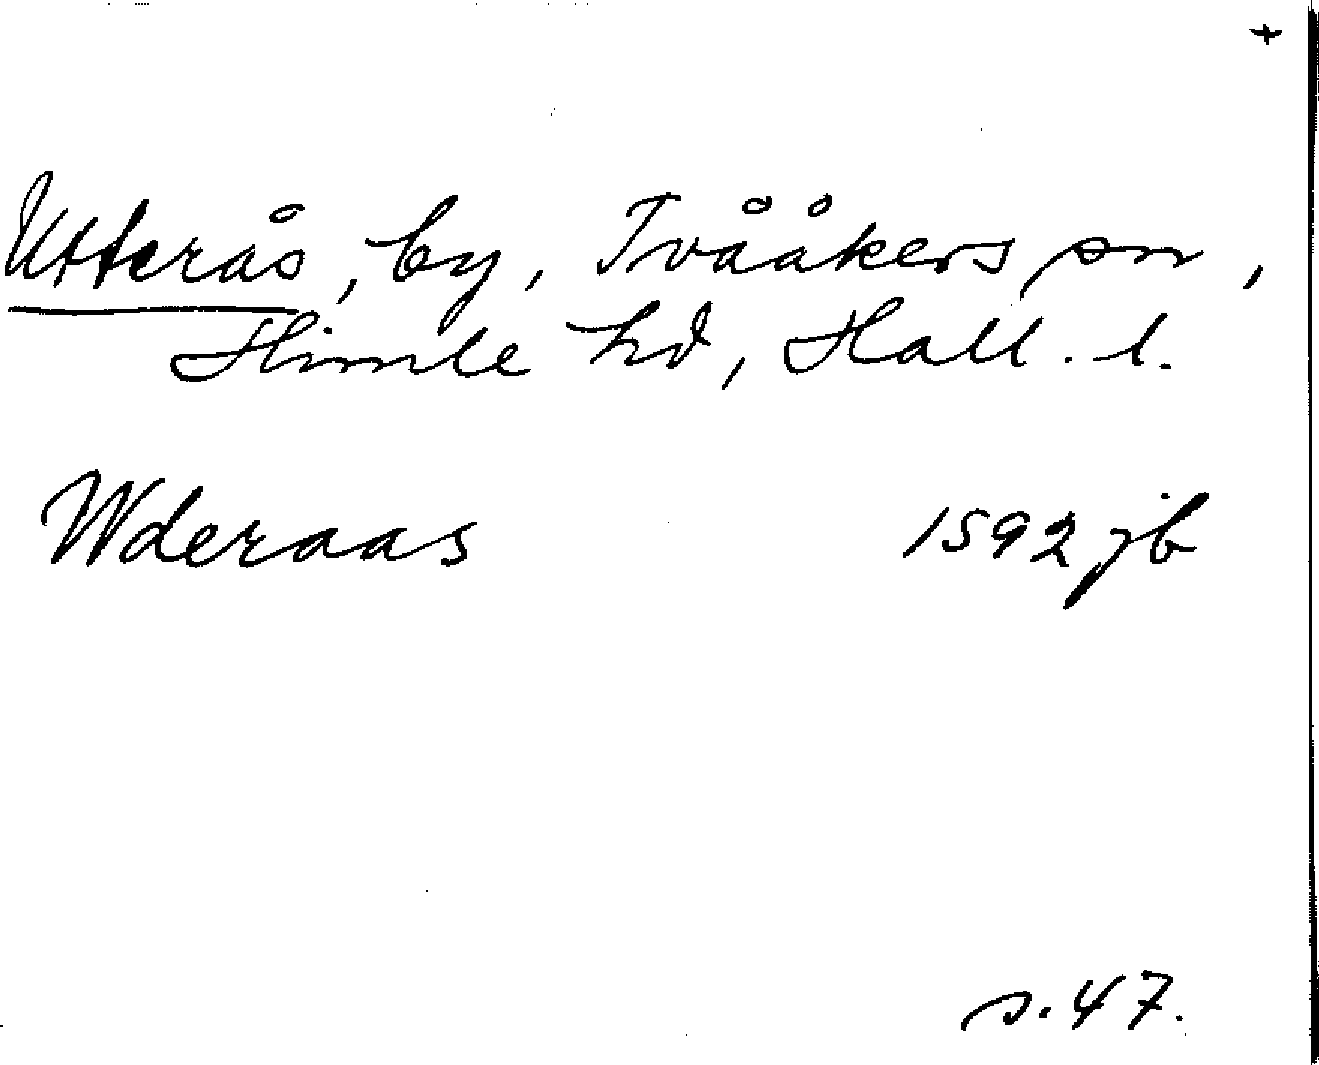 +
Utterås, by, Tvååkers sn,
Himle hd, Hall. l.
Wderaas 1592 jb
s. 47.